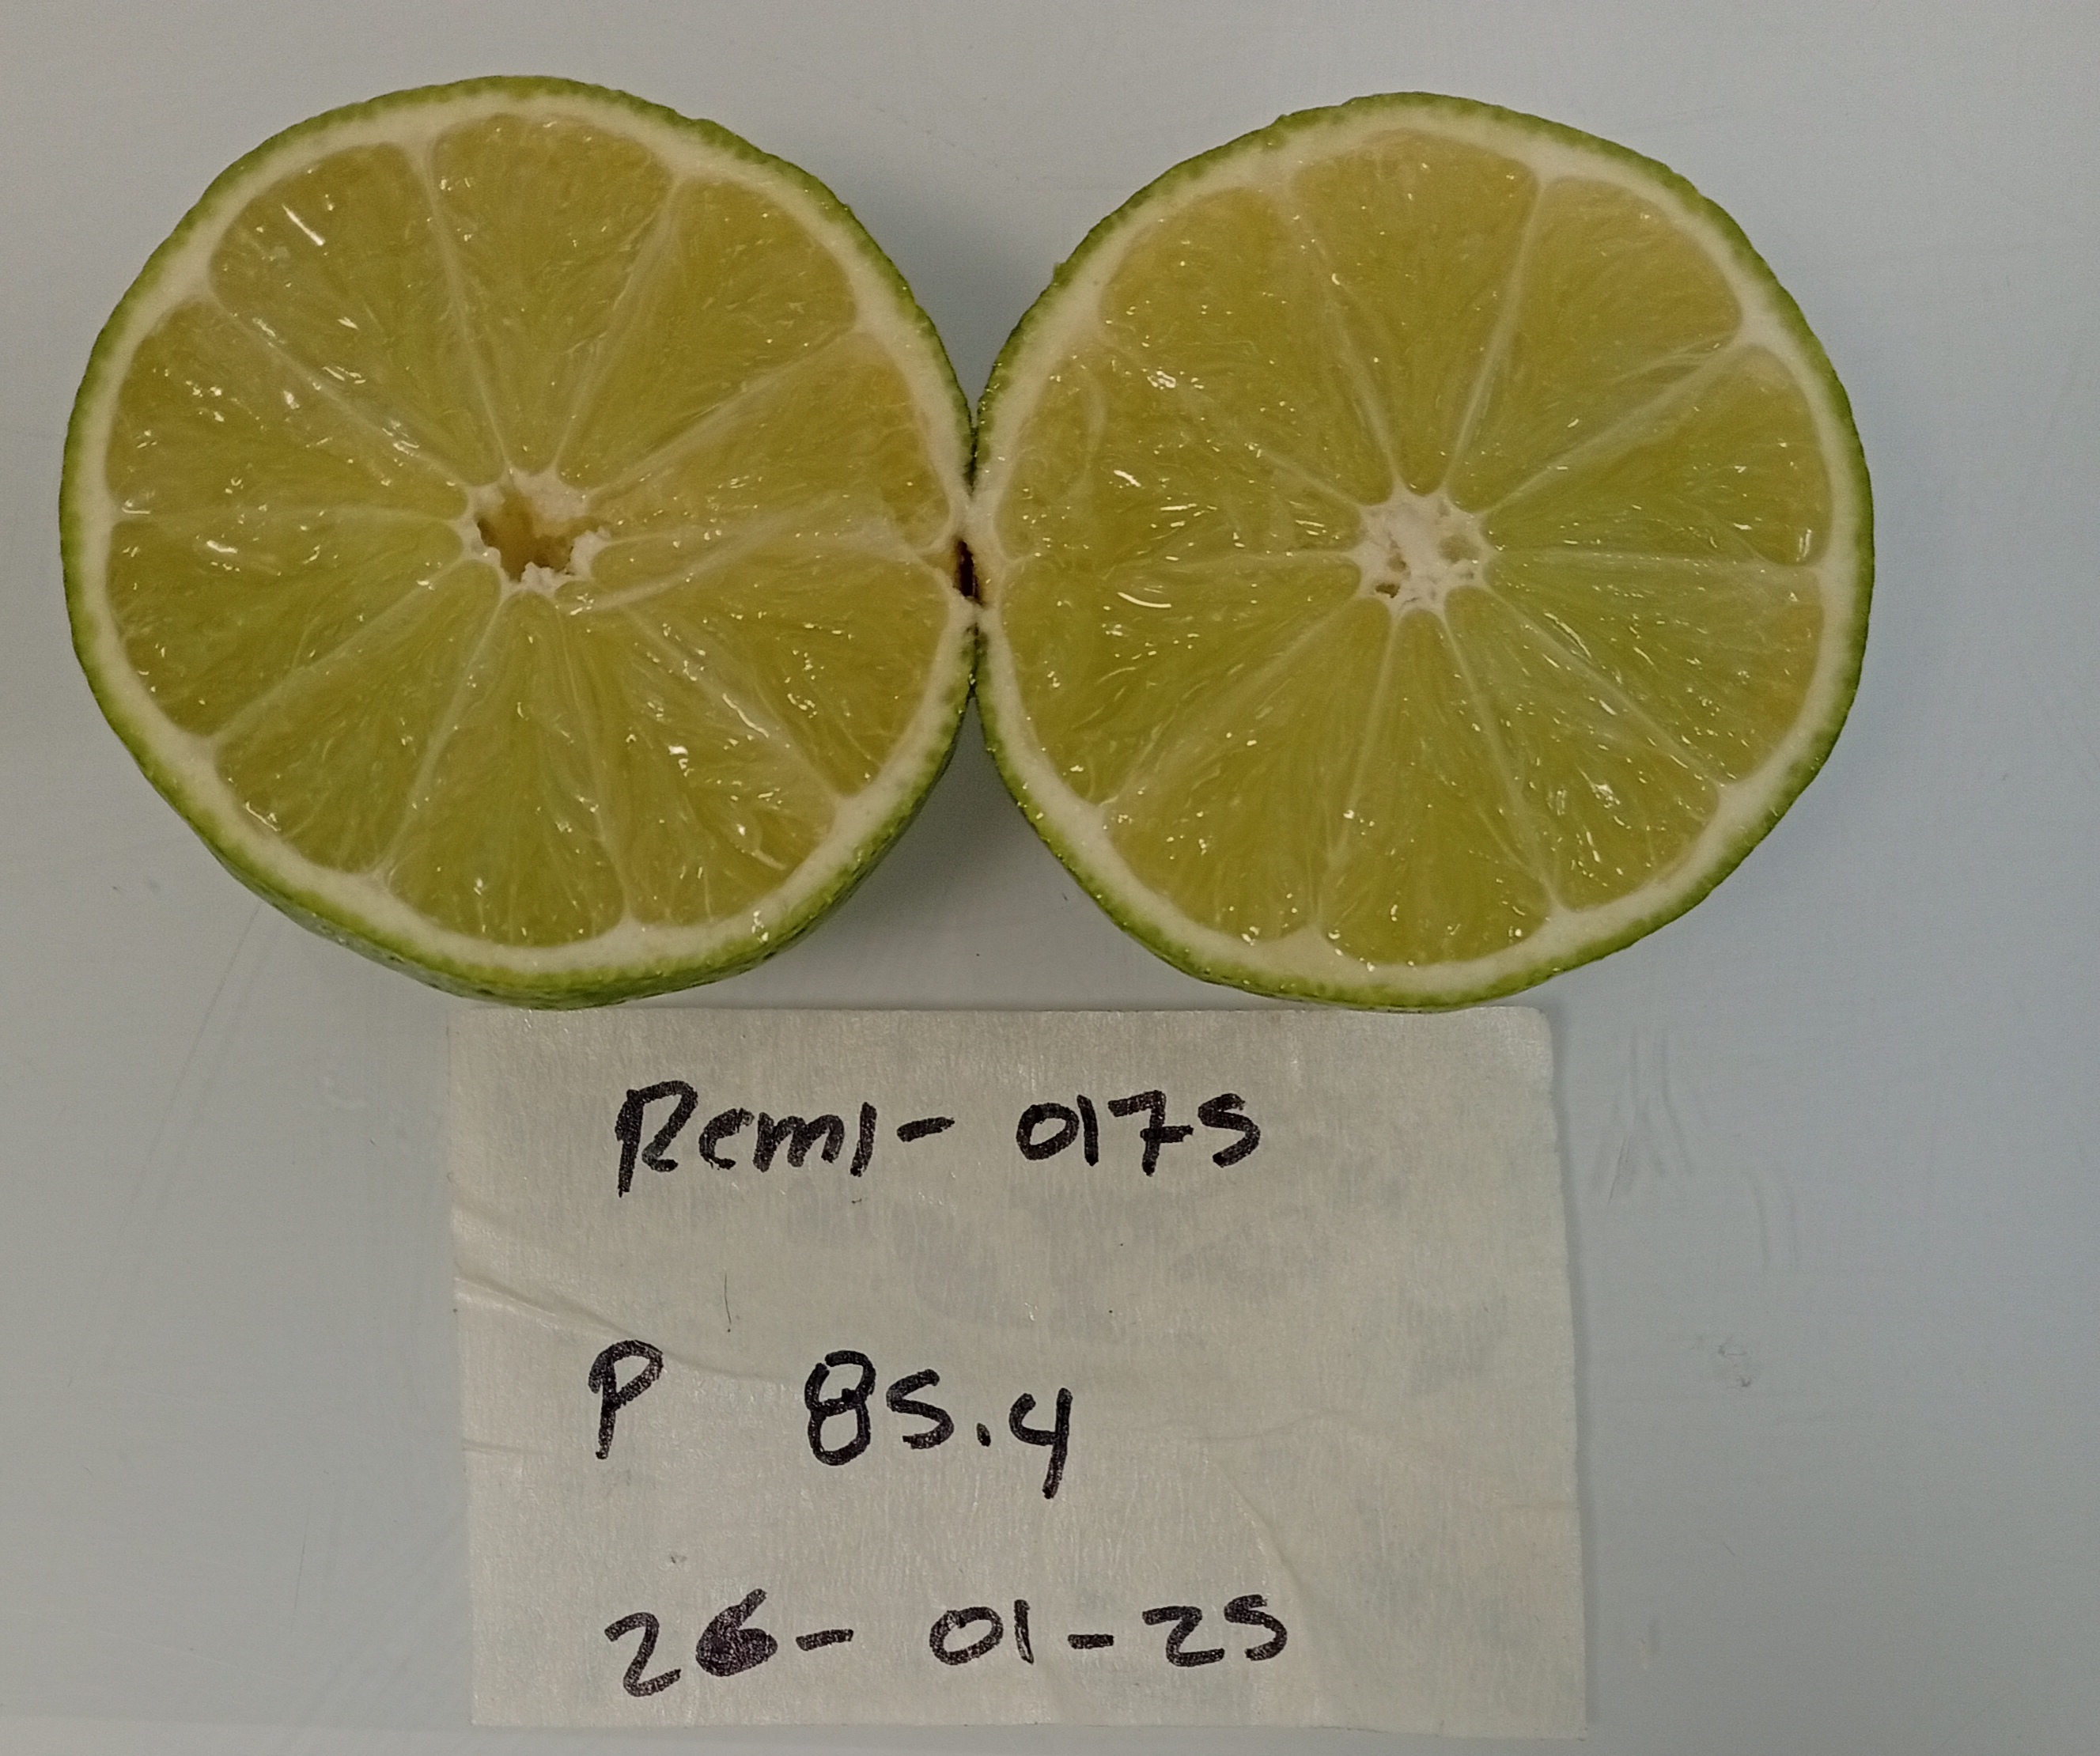 Remi- 0175
P 85.4
26- 01-25